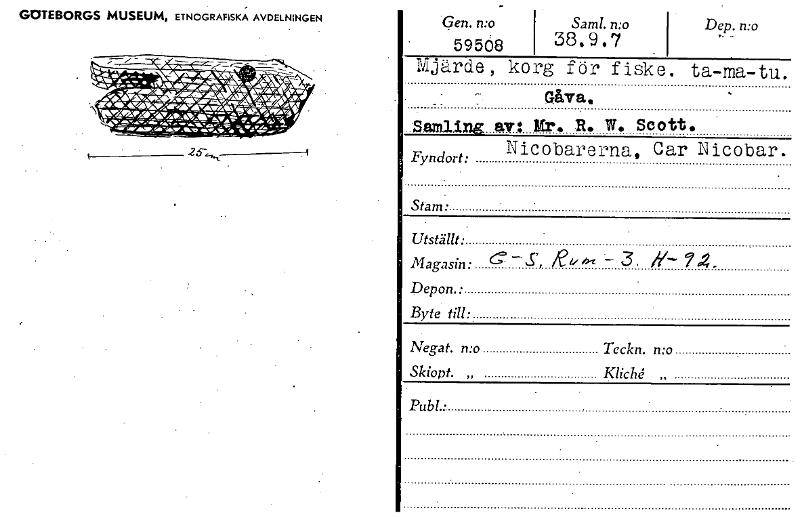 GÖTEBORGS MUSEUM, ETNOGRAFISKA AVDELNINGEN
25 cm
Gen. n:o Saml. n:o Dep. n:o
59508 38.9.7
Mjärde, korg för fiske. ta-ma-tu.
Gåva.
Samling av: Mr. R. W. Scott.
Fyndort: Nicobarerna, Car Nicobar.
Stam:
Utställt:
Magasin: G-S. Rum-3. H-92.
Depon.:
Byte till:
Negat. n:o Teckn. n:o
Skiopt. „ Kliché „
Publ.: